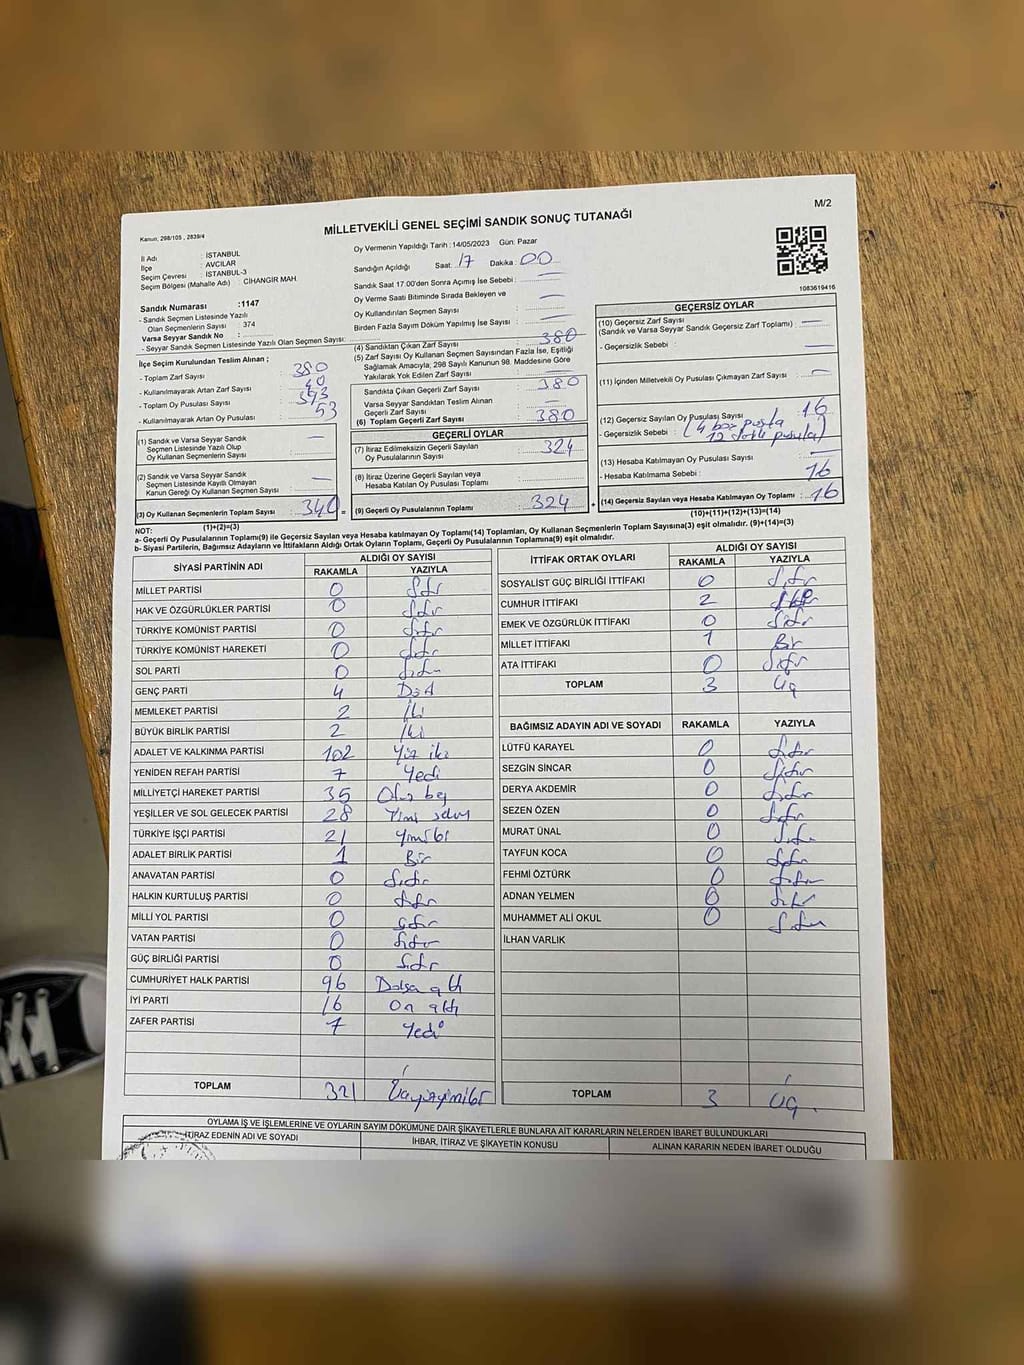 M/2
MİLLETVEKİLİ GENEL SEÇİMİ SANDIK SONUÇ TUTANAĞI
Kanun, 298/105 , 2839/4
İl Adı : İSTANBUL
İlçe : AVCILAR
Seçim Çevresi : İSTANBUL-3
Seçim Bölgesi (Mahalle Adı) : CİHANGİR MAH.
Sandık Numarası :1147
- Sandık Seçmen Listesinde Yazılı
Olan Seçmenlerin Sayısı : 374
Varsa Seyyar Sandık No :
- Seyyar Sandık Seçmen Listesinde Yazılı Olan Seçmen Sayısı:
Oy Vermenin Yapıldığı Tarih : 14/05/2023 Gün: Pazar
Sandığın Açıldığı Saat: 17 Dakika: 00
Sandık Saat 17.00'den Sonra Açımış İse Sebebi : —
Oy Verme Saati Bitiminde Sırada Bekleyen ve
Oy Kullandırılan Seçmen Sayısı : —
Birden Fazla Sayım Döküm Yapılmış İse Sayısı : —
1083619416
İlçe Seçim Kurulundan Teslim Alınan ;
- Toplam Zarf Sayısı : 380
- Kullanılmayarak Artan Zarf Sayısı : 40
- Toplam Oy Pusulası Sayısı : 393
- Kullanılmayarak Artan Oy Pusulası : 53
(1) Sandık ve Varsa Seyyar Sandık
Seçmen Listesinde Yazılı Olup
Oy Kullanan Seçmenlerin Sayısı : —
(2) Sandık ve Varsa Seyyar Sandık
Seçmen Listesinde Kayıtlı Olmayan
Kanun Gereği Oy Kullanan Seçmen Sayısı : —
(3) Oy Kullanan Seçmenlerin Toplam Sayısı : 340 =
(1)+(2)=(3)
(4) Sandıktan Çıkan Zarf Sayısı : 380
(5) Zarf Sayısı Oy Kullanan Seçmen Sayısından Fazla İse, Eşitliği
Sağlamak Amacıyla; 298 Sayılı Kanunun 98. Maddesine Göre
Yakılarak Yok Edilen Zarf Sayısı : —
Sandıkta Çıkan Geçerli Zarf Sayısı : 380
Varsa Seyyar Sandıktan Teslim Alınan
Geçerli Zarf Sayısı : —
(6) Toplam Geçerli Zarf Sayısı : 380
GEÇERLİ OYLAR
(7) İtiraz Edilmeksizin Geçerli Sayılan
Oy Pusulalarının Sayısı : 324
(8) İtiraz Üzerine Geçerli Sayılan veya
Hesaba Katılan Oy Pusulası Toplamı :
(9) Geçerli Oy Pusulalarının Toplamı : 324 +
GEÇERSİZ OYLAR
(10) Geçersiz Zarf Sayısı
(Sandık ve Varsa Seyyar Sandık Geçersiz Zarf Toplamı) : —
- Geçersizlik Sebebi : —
(11) İçinden Milletvekili Oy Pusulası Çıkmayan Zarf Sayısı : —
(12) Geçersiz Sayılan Oy Pusulası Sayısı : 16
- Geçersizlik Sebebi : (4 boş pusula
12 pusula)
(13) Hesaba Katılmayan Oy Pusulası Sayısı : —
- Hesaba Katılmama Sebebi : 16
(14) Geçersiz Sayılan veya Hesaba Katılmayan Oy Toplamı : 16
(10)+(11)+(12)+(13)=(14)
NOT:
a- Geçerli Oy Pusulalarının Toplamı(9) ile Geçersiz Sayılan veya Hesaba katılmayan Oy Toplamı(14) Toplamları, Oy Kullanan Seçmenlerin Toplam Sayısına(3) eşit olmalıdır. (9)+(14)=(3)
b- Siyasi Partilerin, Bağımsız Adayların ve İttifakların Aldığı Ortak Oyların Toplamı, Geçerli Oy Pusulalarının Toplamına(9) eşit olmalıdır.
SİYASİ PARTİNİN ADI ALDIĞI OY SAYISI
RAKAMLA YAZIYLA
MİLLET PARTİSİ 0 Sıfır
HAK VE ÖZGÜRLÜKLER PARTİSİ 0 Sıfır
TÜRKİYE KOMÜNİST PARTİSİ 0 Sıfır
TÜRKİYE KOMÜNİST HAREKETİ 0 Sıfır
SOL PARTİ 0 Sıfır
GENÇ PARTİ 4 Dört
MEMLEKET PARTİSİ 2 İki
BÜYÜK BİRLİK PARTİSİ 2 İki
ADALET VE KALKINMA PARTİSİ 102 Yüz iki
YENİDEN REFAH PARTİSİ 7 Yedi
MİLLİYETÇİ HAREKET PARTİSİ 35 Otuz beş
YEŞİLLER VE SOL GELECEK PARTİSİ 28 Yirmi sekiz
TÜRKİYE İŞÇİ PARTİSİ 21 Yirmi bir
ADALET BİRLİK PARTİSİ 1 Bir
ANAVATAN PARTİSİ 0 Sıfır
HALKIN KURTULUŞ PARTİSİ 0 Sıfır
MİLLİ YOL PARTİSİ 0 Sıfır
VATAN PARTİSİ 0 Sıfır
GÜÇ BİRLİĞİ PARTİSİ 0 Sıfır
CUMHURİYET HALK PARTİSİ 96 Doksan altı
İYİ PARTİ 16 On altı
ZAFER PARTİSİ 7 Yedi
TOPLAM 321 Üçyüzyirmibir
İTTİFAK ORTAK OYLARI ALDIĞI OY SAYISI
RAKAMLA YAZIYLA
SOSYALİST GÜÇ BİRLİĞİ İTTİFAKI 0 Sıfır
CUMHUR İTTİFAKI 2
EMEK VE ÖZGÜRLÜK İTTİFAKI 0 Sıfır
MİLLET İTTİFAKI 1 Bir
ATA İTTİFAKI 0 Sıfır
TOPLAM 3 Üç
BAĞIMSIZ ADAYIN ADI VE SOYADI RAKAMLA YAZIYLA
LÜTFÜ KARAYEL 0 Sıfır
SEZGİN SİNCAR 0 Sıfır
DERYA AKDEMİR 0 Sıfır
SEZEN ÖZEN 0 Sıfır
MURAT ÜNAL 0 Sıfır
TAYFUN KOCA 0 Sıfır
FEHMİ ÖZTÜRK 0 Sıfır
ADNAN YELMEN 0 Sıfır
MUHAMMET ALİ OKUL 0 Sıfır
İLHAN VARLIK
TOPLAM 3 Üç.
OYLAMA İŞ VE İŞLEMLERİNE VE OYLARIN SAYIM DÖKÜMÜNE DAİR ŞİKAYETLERLE BUNLARA AİT KARARLARIN NELERDEN İBARET BULUNDUKLARI
İTİRAZ EDENİN ADI VE SOYADI İHBAR, İTİRAZ VE ŞİKAYETİN KONUSU ALINAN KARARIN NEDEN İBARET OLDUĞU